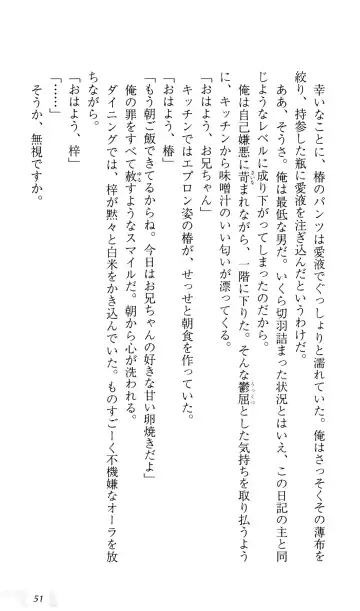 幸いなことに、椿のパンツは愛液でぐっしょりと濡れていた。俺はさっそくその薄布を
絞り、持参した瓶に愛液を注ぎ込んだというわけだ。
ああ、そうさ。俺は最低な男だ。いくら切羽詰まった状況とはいえ、この日記の主と同
じようなレベルに成り下がってしまったのだから。
俺は自己嫌悪に苛まれながら、一階に下りた。そんな鬱屈とした気持ちを取り払うよう
に、キッチンから味噌汁のいい匂いが漂ってくる。
「おはよう、お兄ちゃん」
キッチンではエプロン姿の椿が、せっせと朝食を作っていた。
「おはよう、椿」
「もう朝ご飯できてるからね。今日はお兄ちゃんの好きな甘い卵焼きだよ」
俺の罪をすべて赦すようなスマイルだ。朝から心が洗われる。
ダイニングでは、梓が黙々と白米をかき込んでいた。ものすごーく不機嫌なオーラを放
ちながら。
「おはよう、梓」
「……」
そうか、無視ですか。
51